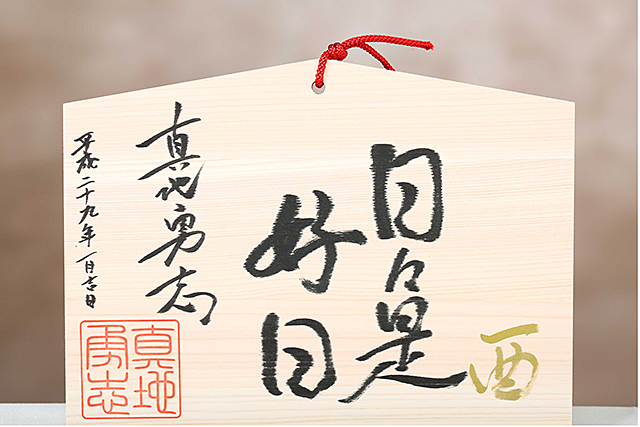 酉
日々是
好日
真地勇志
平成二十九年一月吉日
真地
勇志